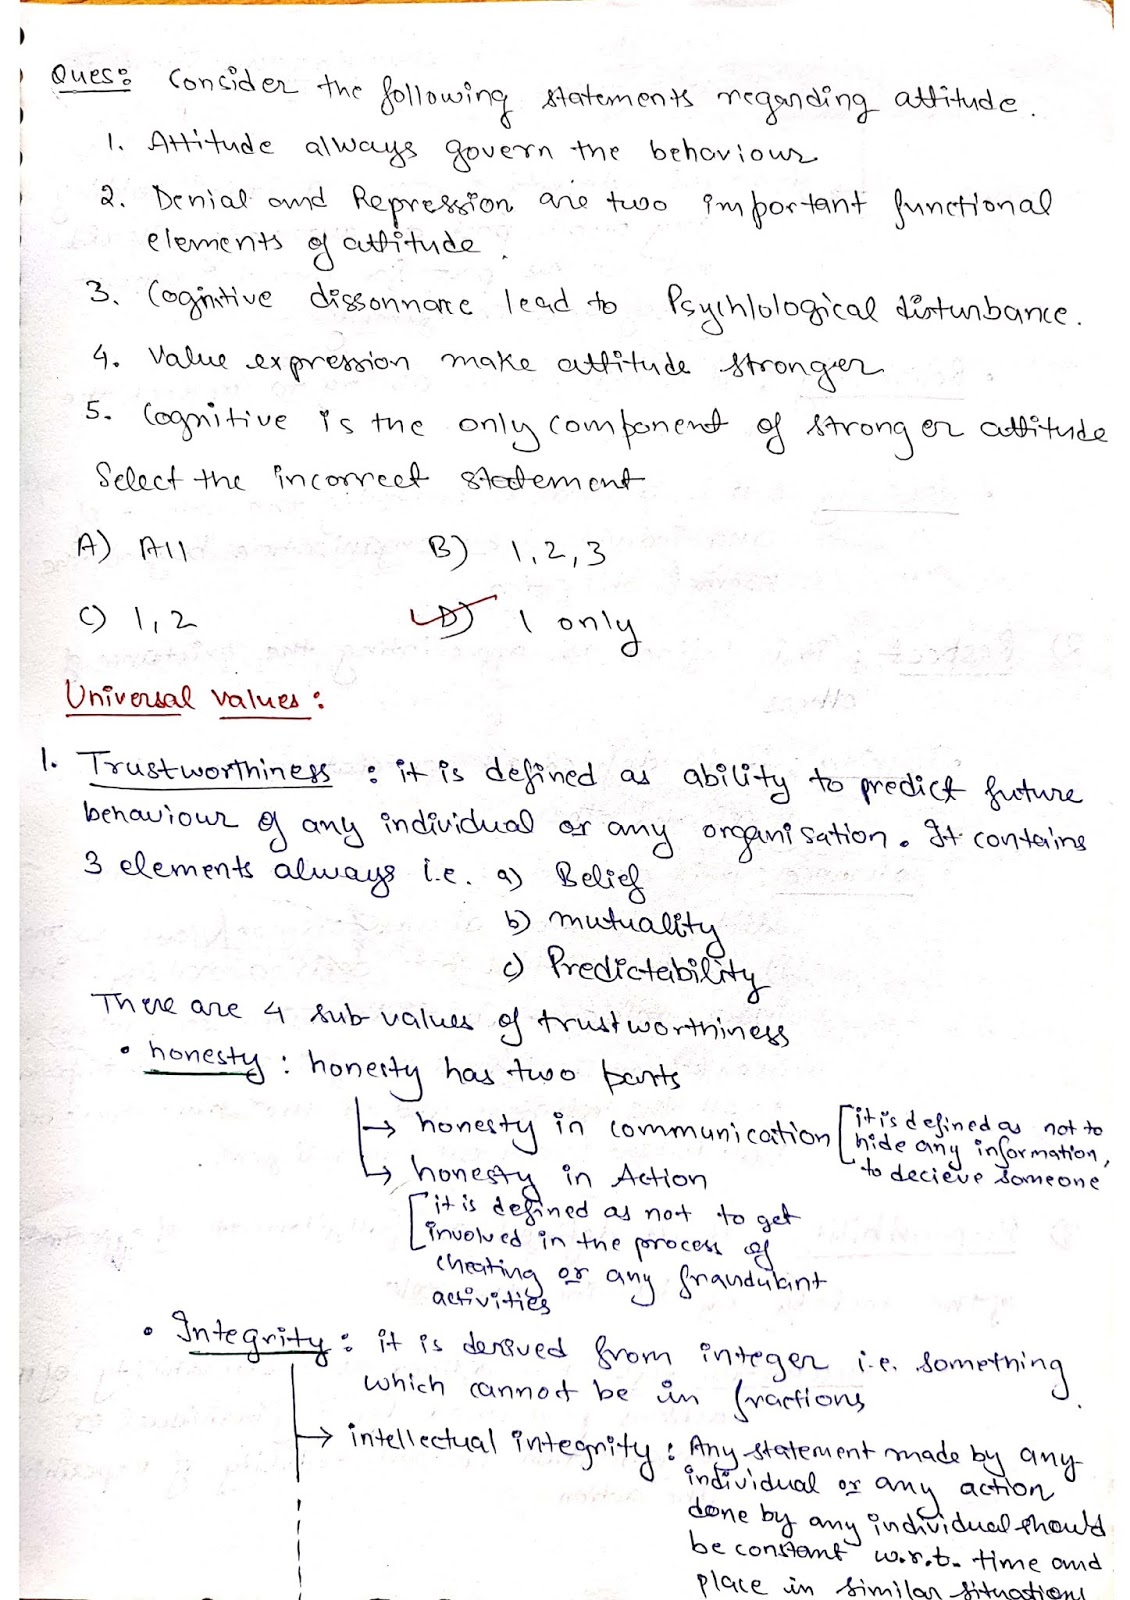 Ques: Consider the following statements regarding attitude.
1. Attitude always govern the behaviour
2. Denial and Repression are two important functional
elements of attitude.
3. Cognitive dissonnance lead to Psychlological disturbance.
4. Value expression make attitude stronger
5. Cognitive is the only component of stronger attitude
Select the incorrect statement
A) All B) 1,2,3
C) 1,2 D) 1 only
Universal values:
1. Trustworthiness: it is defined as ability to predict future
behaviour of any individual or any organisation. It contains
3 elements always i.e. a) Belief
b) mutuality
c) Predictability
There are 4 sub values of trustworthiness
• honesty: honesty has two parts
→ honesty in communication [it is defined as not to
hide any information,
to decieve someone
→ honesty in Action
[it is defined as not to get
involved in the process of
cheating or any fraudulant
activities
• Integrity: it is derived from integer i.e. something
which cannot be in fractions.
→ intellectual integrity: Any statement made by any
individual or any action
done by any individual should
be constant w.r.t. time and
place in similar situations